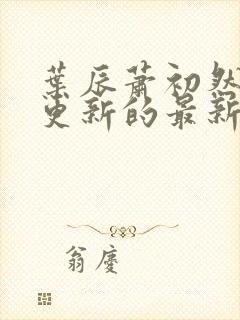 葉辰蕭初然
更新的最新
翁慶